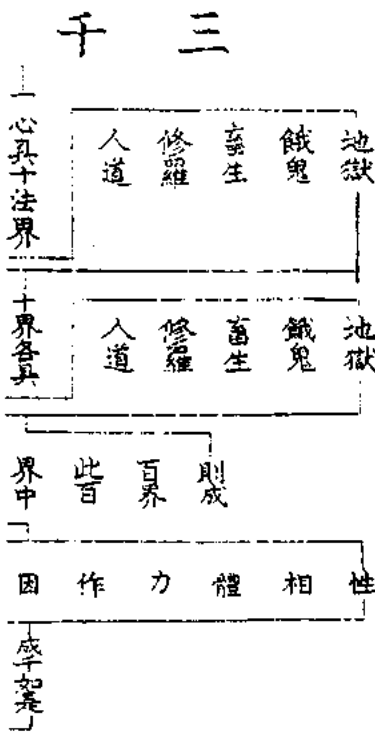 三千
一心具十法界
地獄 餓鬼 畜生 修羅 人道
十界各具
地獄 餓鬼 畜生 修羅 人道
則成 百界 此百 界中
性 相 體 力 作 因
成千如是